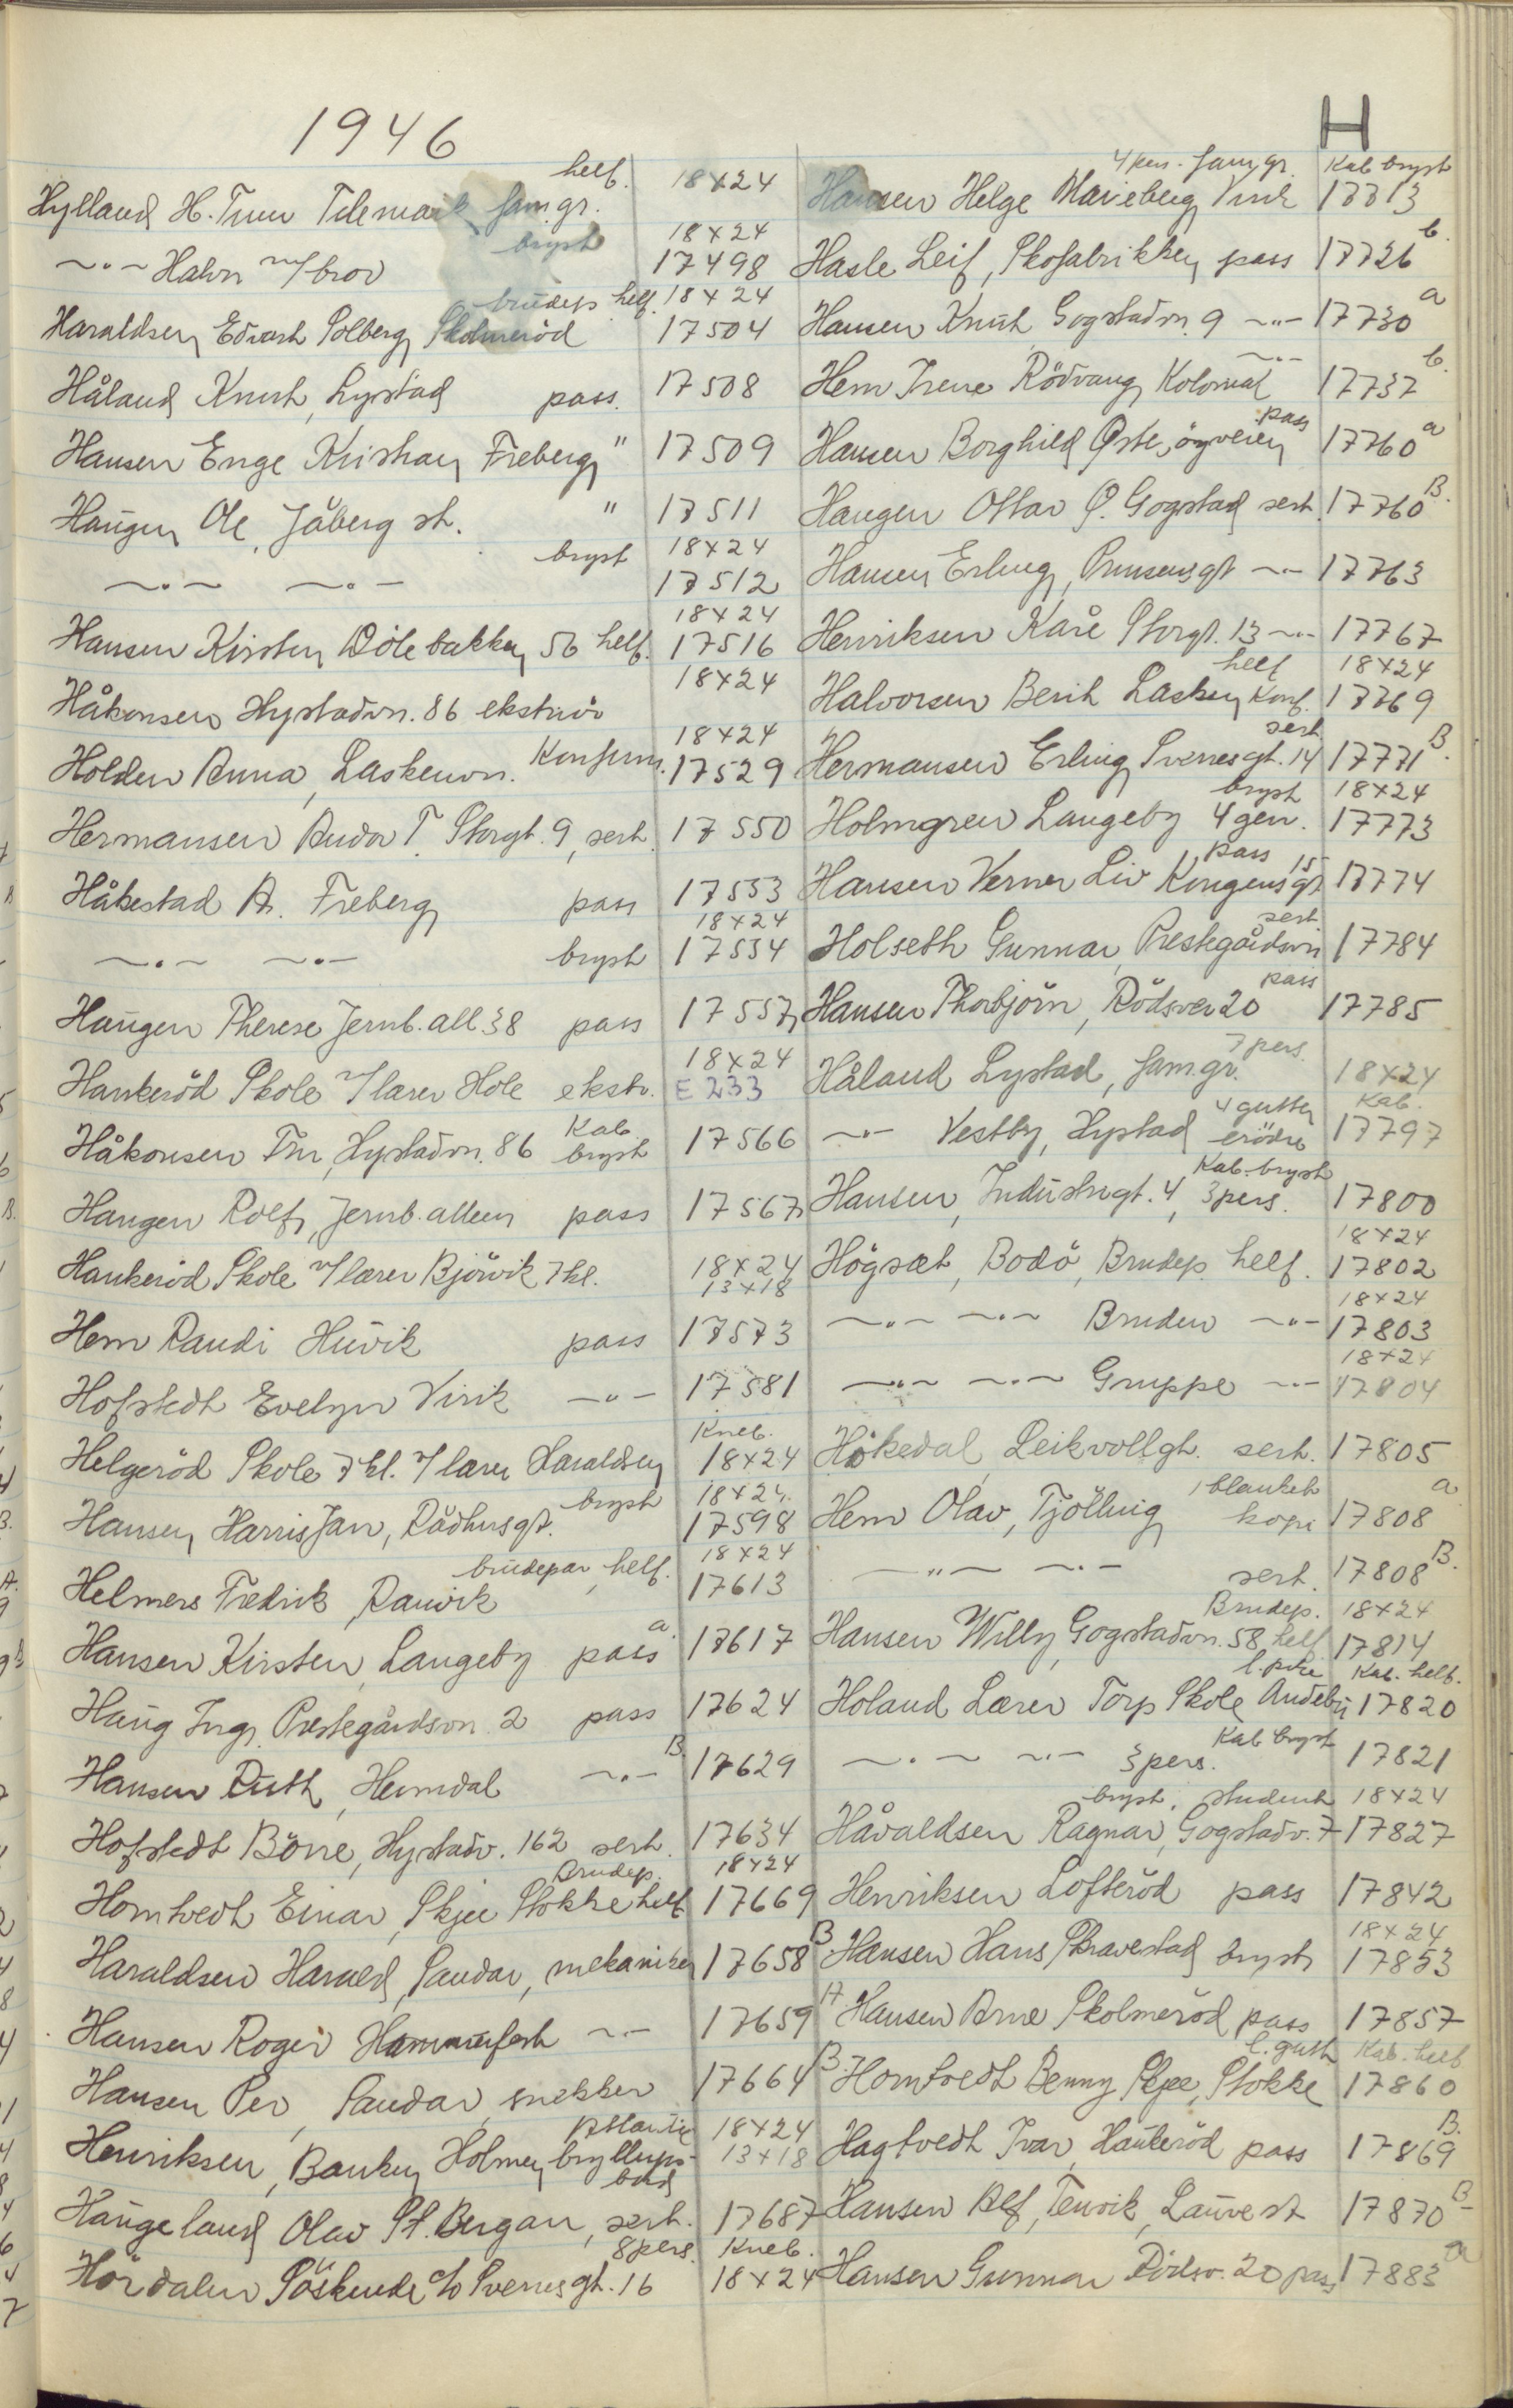 1946
H
helf. 18x24
Hylland H. Tuun Telemark fam.gr.
bryst 18x24
—"— Halvn m/bror 17498
brudep. helf. 18x24
Haraldsen Edvart Solberg Skolmeröd 17504
Håland Knut, Lystad pass. 17508
Hansen Enge Kristian Freberg " 17509
Haugen Ole, Jåberg st. " 17511
bryst 18x24
—"— —"— 17512
18x24
Hansen Kirsten Dölebakken 56 helf. 17516
18x24
Håkonsen Hystadvn. 86 eksteriör
18x24
Holden Anna, Laskenvn. Konfirm. 17529
Hermansen Andor T. Storgt. 9, sert. 17550
Håkestad A. Freberg pass 17553
18x24
—"— —"— bryst 17554
Haugen Therese Jernb.all. 38 pass 17557
18x24
Haukeröd Skole m/lærer Hole ekstr. E 233
Kab.
Håkonsen Thr, Hystadvn. 86 bryst 17566
Haugen Rolf, Jernb.alleen pass 17567
Haukeröd Skole m/lærer Björvik 7kl. 18x24
13x18
Hem Randi Huvik pass 17573
Hofstedt Evelyn Virik —"— 17581
Kneb.
Helgeröd Skole 7kl. m/lærer Haraldsen 18x24
bryst 18x24.
Hansen Harris Jan, Rådhusgt. 17598
brudepar, helf. 18x24
Helmers Fredrik, Ranvik 17613
Hansen Kirsten, Langeby pass 17617 a.
Haug Ingr. Prestegårdsvn. 2 pass 17624
Hansen Ruth, Heimdal —"— B. 17629
Hofstedt Börre, Hystadv. 162 sert. 17634
Brudep. 18x24
Homtvedt Einar, Skjee Stokke helf 17669
Haraldsen Harald, Sandar, mekaniker 17658 B
Hansen Roger Hammerfest —"— 17659 A
Hansen Per, Sandar, snekker 17664 B
Atlantic 18x24
Henriksen, Banken Holmen bryllups- 13x18
bord
Haugeland Olav St. Bergan, sert. 17687
8 pers. Kneb.
Hördalen Söskende c/o Sverresgt. 16 18x24
4 pers. fam.gr. Kab bryst
Hansen Helge Marieberg Virik 17713
Hasle Leif, Skofabrikken pass 17726 b.
Hansen Knut Gogstadvn. 9 —"— 17730 a
Hem Irene Rödvang Kolonial —"— 17737 b.
pass
Hansen Borghild Östersögveien 17760 a
Haugen Ottar Ø. Gogstad sert. 17760 B.
Hansen Erling, Prinsensgt —"— 17763
Henriksen Kåre Storgt. 13 —"— 17767
helf 18x24
Halvorsen Berit Lasken Konf. 17769
sert.
Hermansen Erling Sverresgt. 14 17771 B.
bryst 18x24
Holmgren Langeby 4 gen. 17773
pass
Hansen Verner Liv Kongensgt 15 17774
sert.
Holseth Gunnar, Prestegårdsvn 17784
pass
Hansen Thorbjörn, Rödsvei 20 17785
7 pers.
Håland Lystad, fam.gr. 18x24
4 gutter Kab.
—"— Vestby, Hystad 17797
Kab. bryst
Hansen, Industrigt. 4, 3 pers. 17800
18x24
Högsæt, Bodö, Brudep. helf. 17802
18x24
—"— —"— Bruden —"— 17803
18x24
—"— —"— Gruppe —"— 17804
Håkedal, Leikvollgt. sert. 17805
1 blankeb
Hem Olav, Tjölling kopi 17808 a
—"— —"— sert. 17808 B.
Brudep. 18x24
Hansen Willy, Gogstadvn. 58 helf 17814
l. pike Kab. helf.
Holand Lærer Torp Skole Andebu 17820
Kab bryst
—"— —"— 3 pers. 17821
bryst, student 18x24
Håvaldsen Ragnar, Gogstadv. 7 17827
Henriksen Lofteröd pass 17842
18x24
Hansen Hans Skravestad bryst 17853
Hansen Arne Skolmeröd pass 17857
l. gutt Kab. helf
Homtvedt Benny Skjee, Stokke 17860
Hagtvedt Ivar, Haukeröd pass 17869 B.
Hansen Alf, Tenvik, Lauve st 17870 B
Hansen Gunnar Rödsv. 20 pass 17883 a